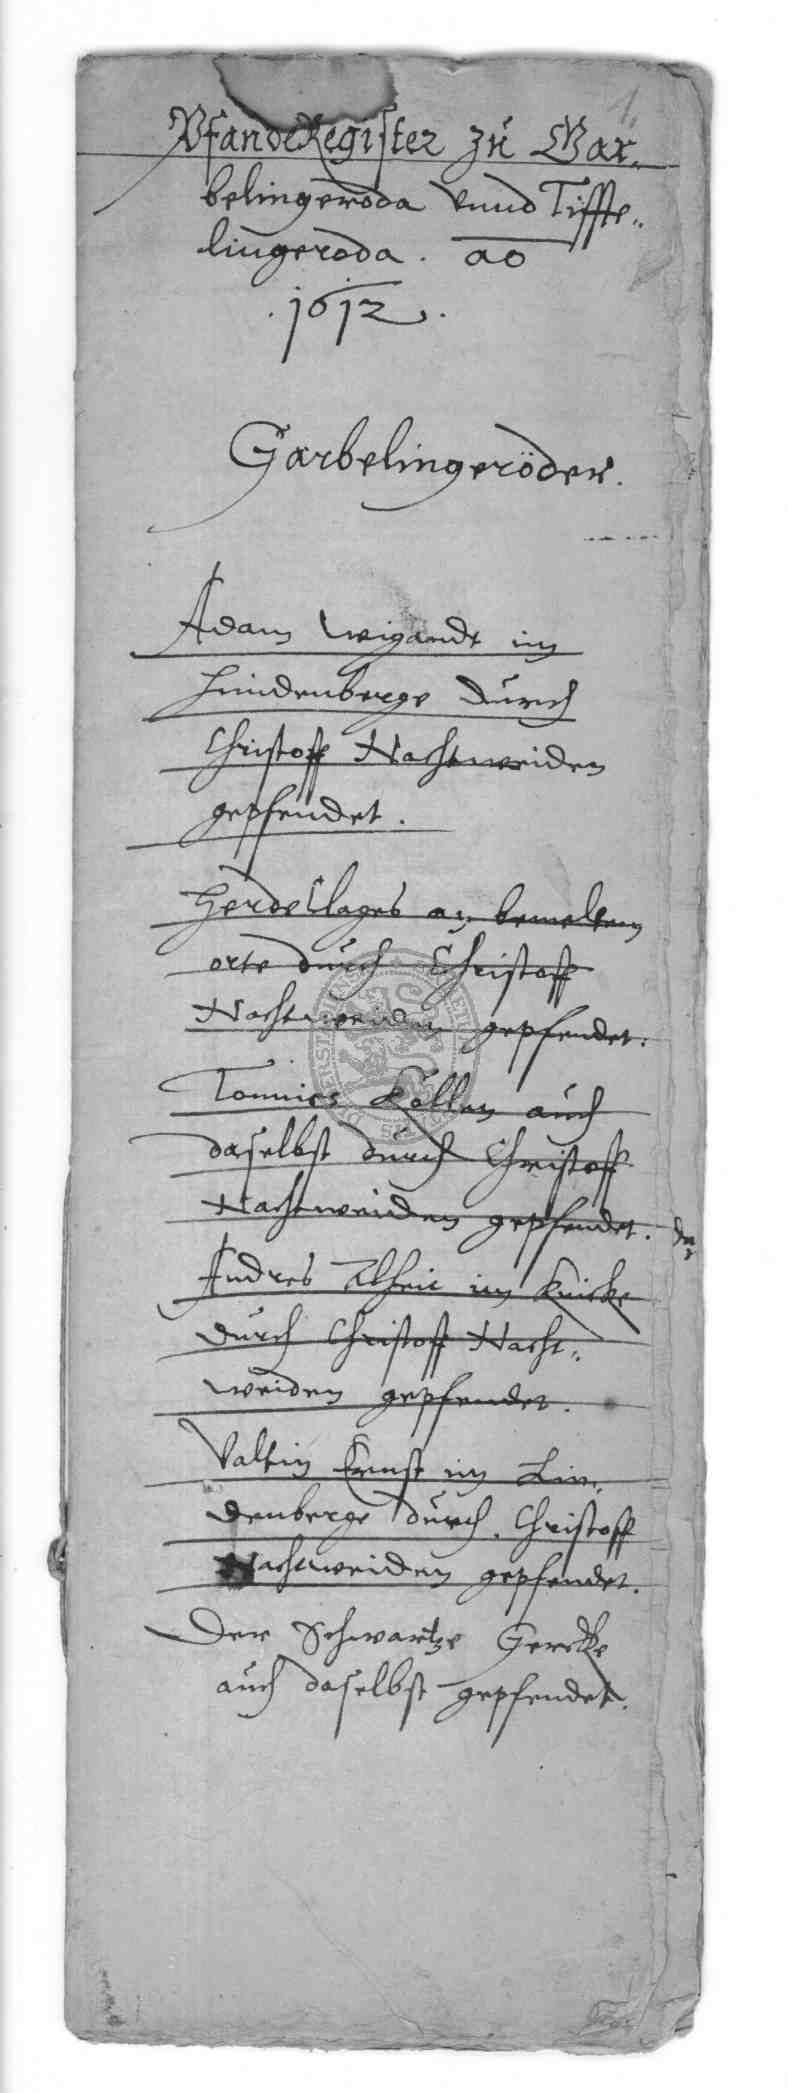 1.
PfandeRegister zu Gar„
belingeroda vnnd Tiffte„
lingeroda. ao
.1612.
Garbelingeröder.
Adam Wigandt im
Lindenberge durch
Christoff Nachtweiden
gepfendet.
an bemeltem
orte durch Christoff
Nachtweiden gepfendet.
Tonnies Kollen auch
daselbst durch Christoff
Nachtweiden gepfendet.
Andres im Knicke
durch Christoff Nacht„
weiden gepfendet.
Valtin Ernst im Lin„
denberge durch Christoff
Nachtweiden gepfendet.
Der Schwartze Gercke
auch daselbst gepfendet.